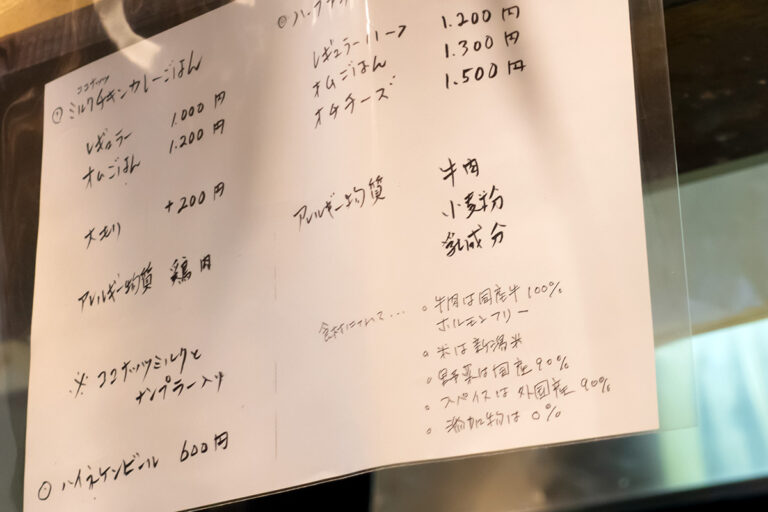 ココナッツ
◎ ミルクチキンカレーごはん
レギュラー 1.000円
オムごはん 1.200円
大モリ +200円
アレルギー物質 鶏肉
※ ココナッツミルクと
ナンプラー入り
◎ ハイネケンビール 600円
◎ ハーフ
レギュラーハーフ 1.200円
オムごはん 1.300円
オムチーズ 1.500円
アレルギー物質 牛肉
小麦粉
乳成分
食材について...
○ 牛肉は国産牛100%
ホルモンフリー
○ 米は新潟米
○ 野菜は国産90%
○ スパイスは外国産90%
○ 添加物は0%